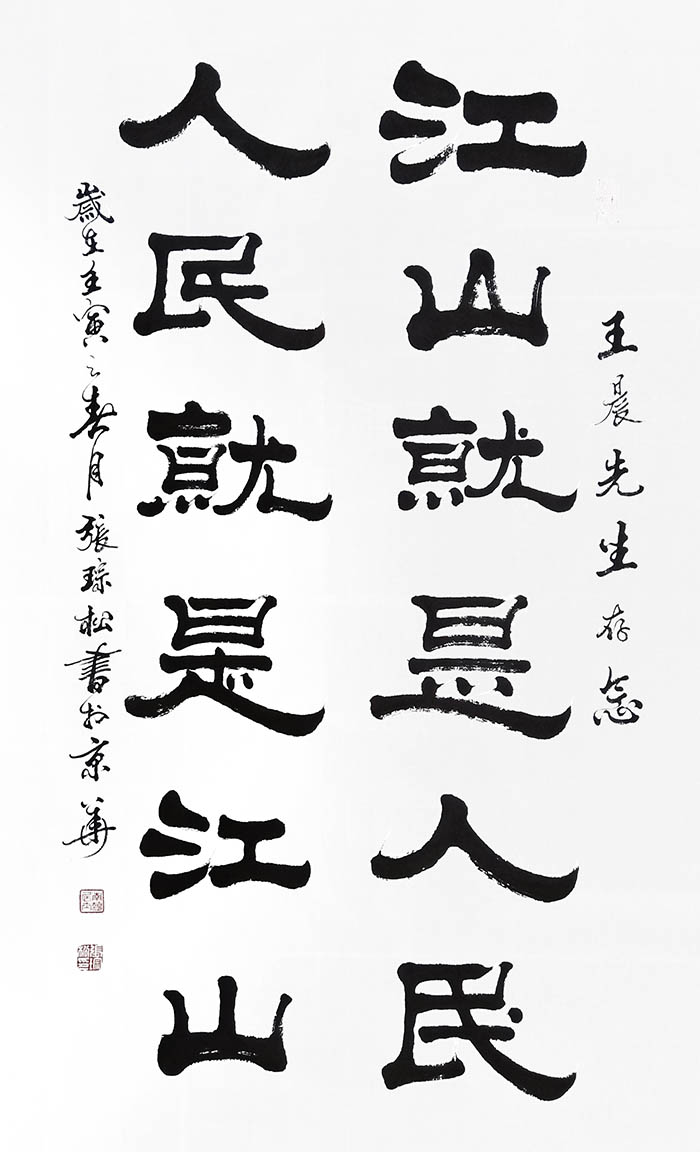 王晨先生存念
江山就是人民
人民就是江山
歲在壬寅之春月張琮松書於京華